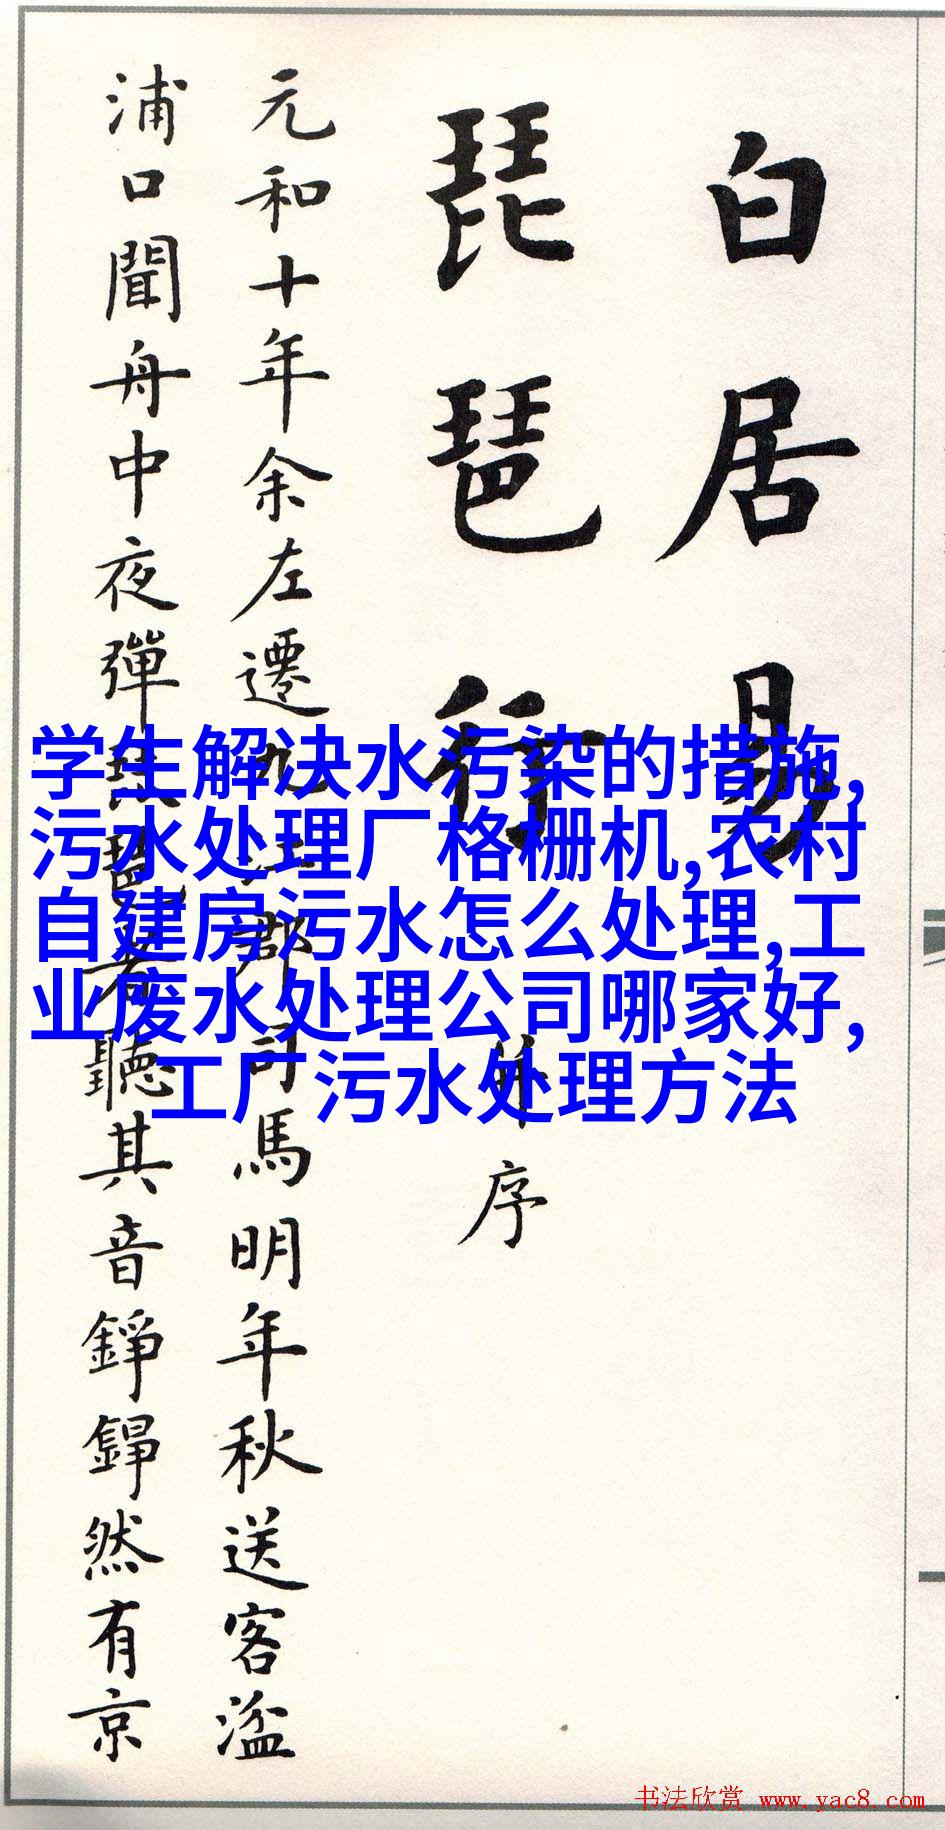 白居易
琵琶行
并序
元和十年余左遷九江郡司馬明年秋送客湓
浦口聞舟中夜彈琵琶者聽其音錚錚然有京
学生解决水污染的措施,
污水处理厂格栅机,农村
自建房污水怎么处理,工
业废水处理公司哪家好,
工厂污水处理方法
书法欣赏 www.yac8.com